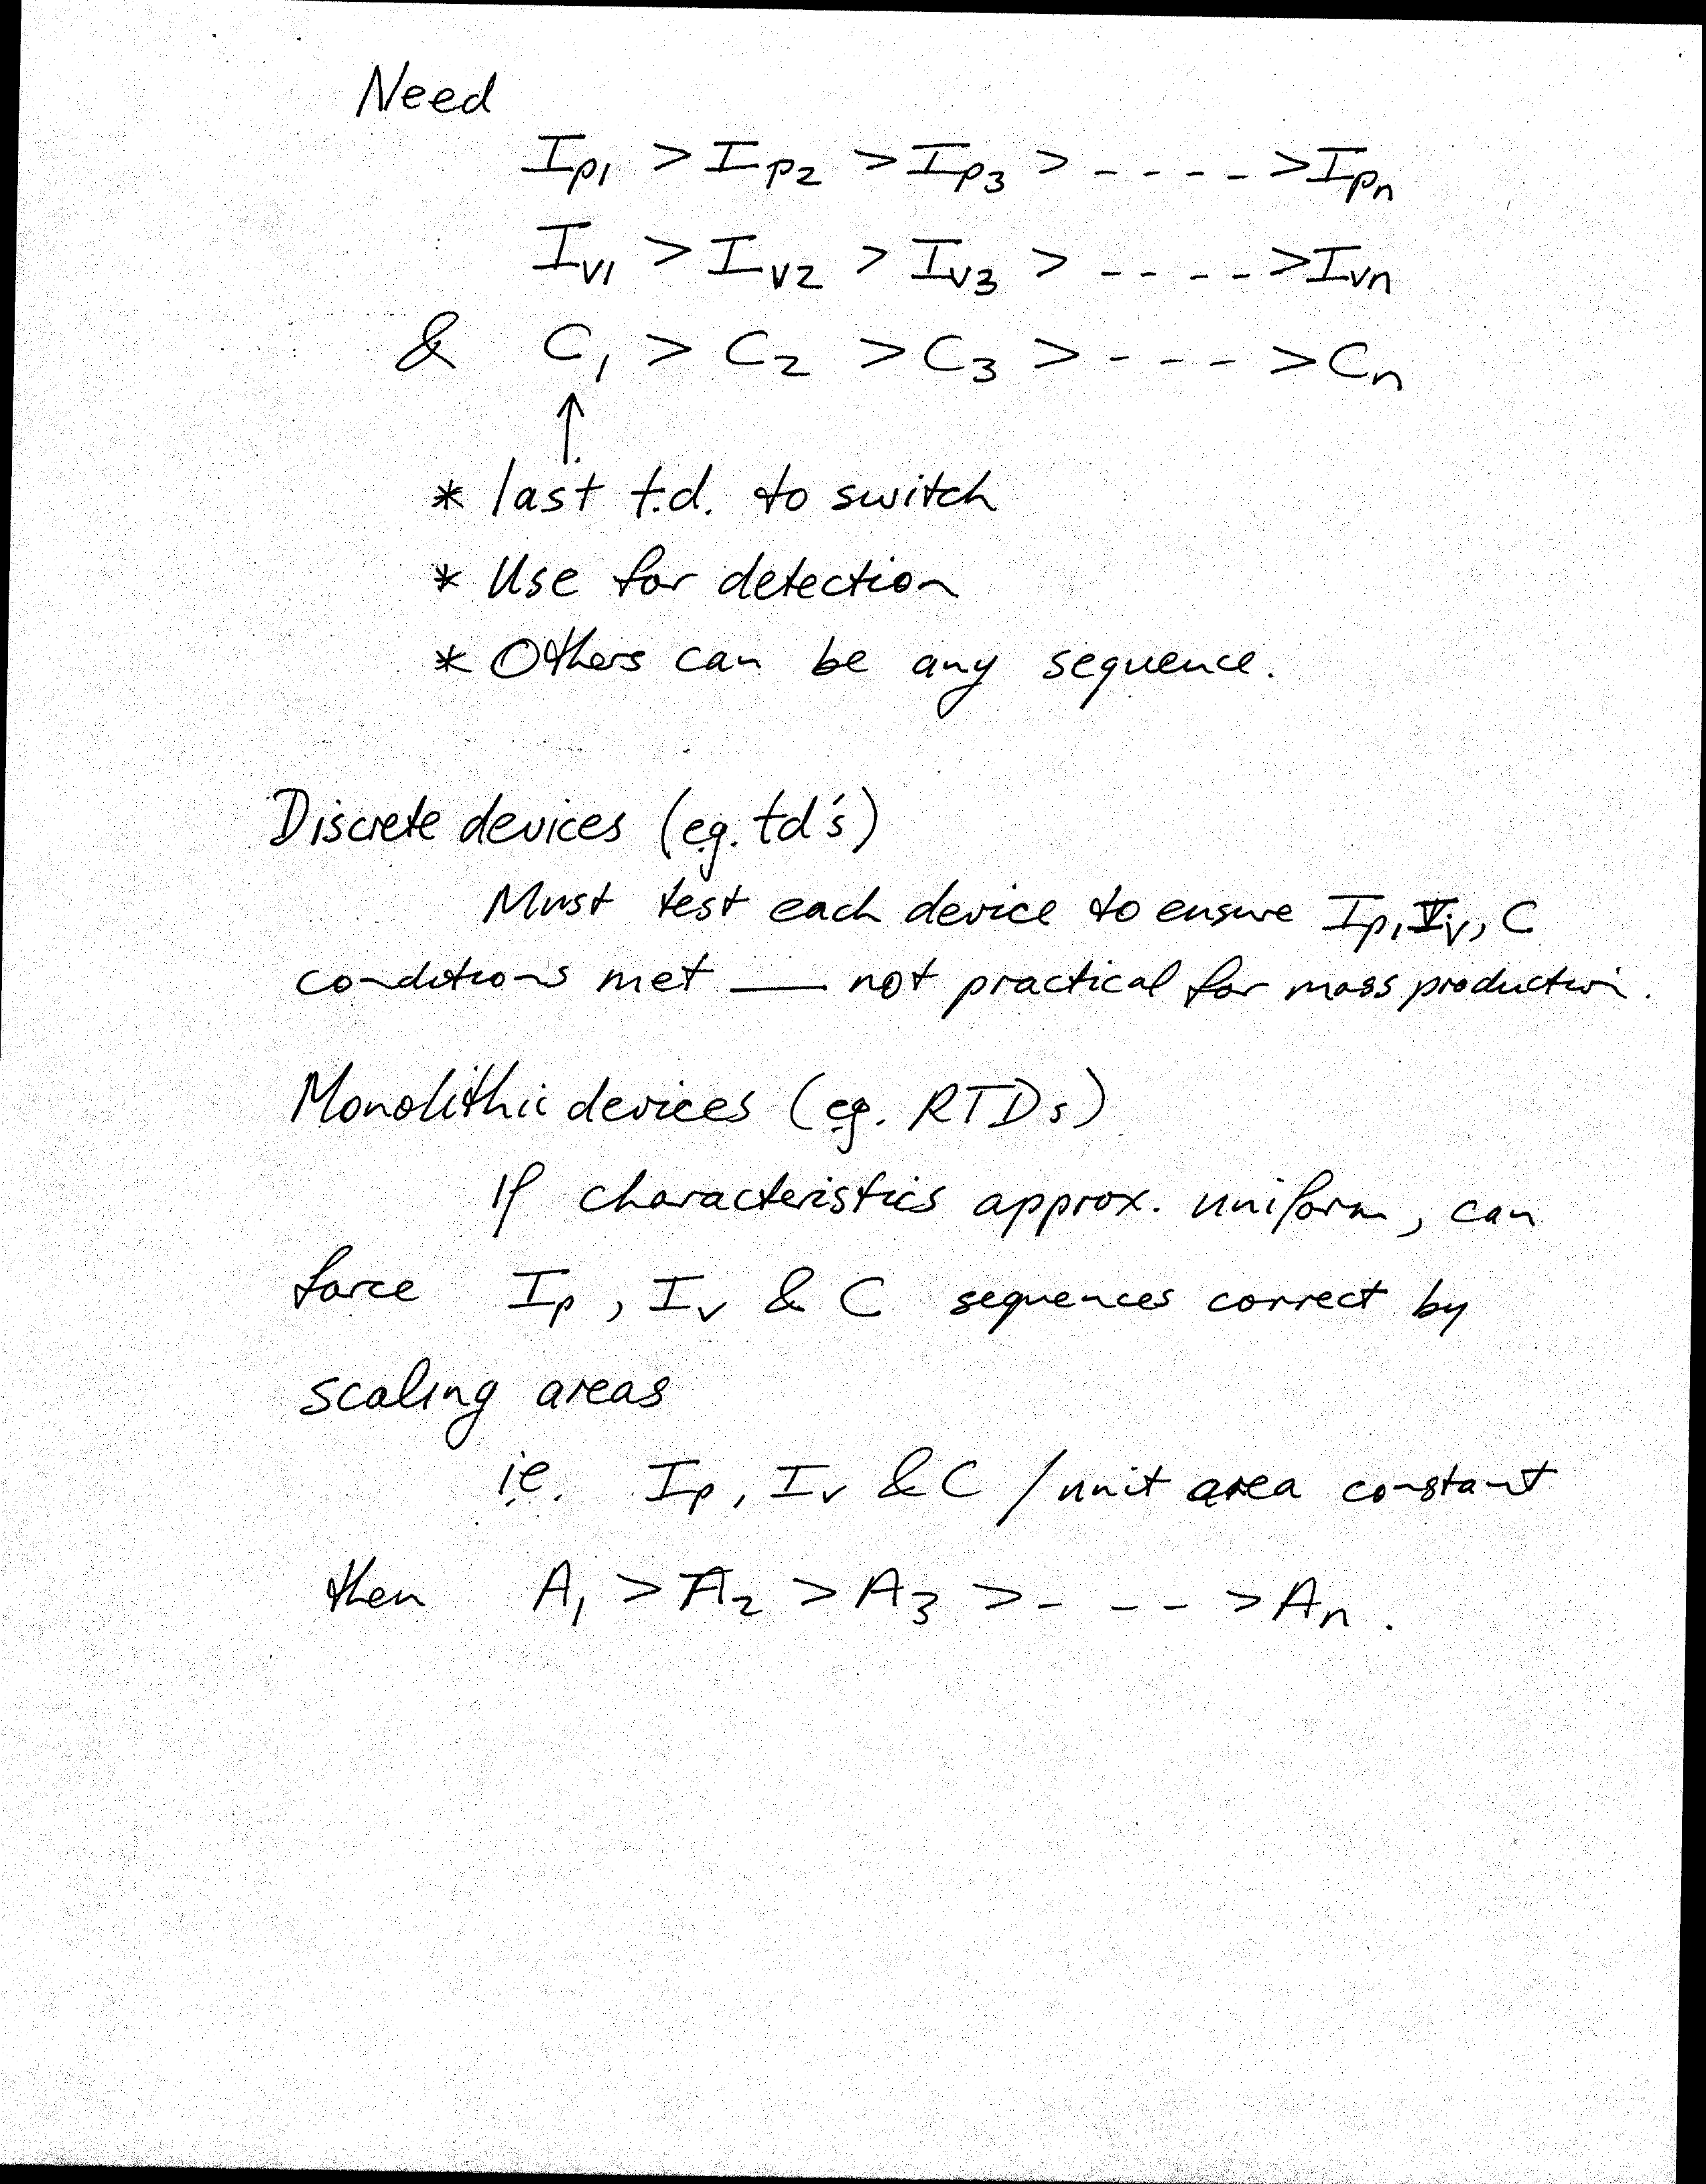 Need
Ip1 > Ip2 > Ip3 > - - - - > Ipn
Iv1 > Iv2 > Iv3 > - - - - > Ivn
& C1 > C2 > C3 > - - - > Cn
↑
* last t.d. to switch
* Use for detection
* Others can be any sequence.
Discrete devices (eg. td's)
Must test each device to ensure Ip, Iv, C
conditions met — not practical for mass production.
Monolithic devices (eg. RTDs)
If characteristics approx. uniform, can
force Ip, Iv & C sequences correct by
scaling areas
ie. Ip, Iv & C /unit area constant
then A1 > A2 > A3 > - - - > An.